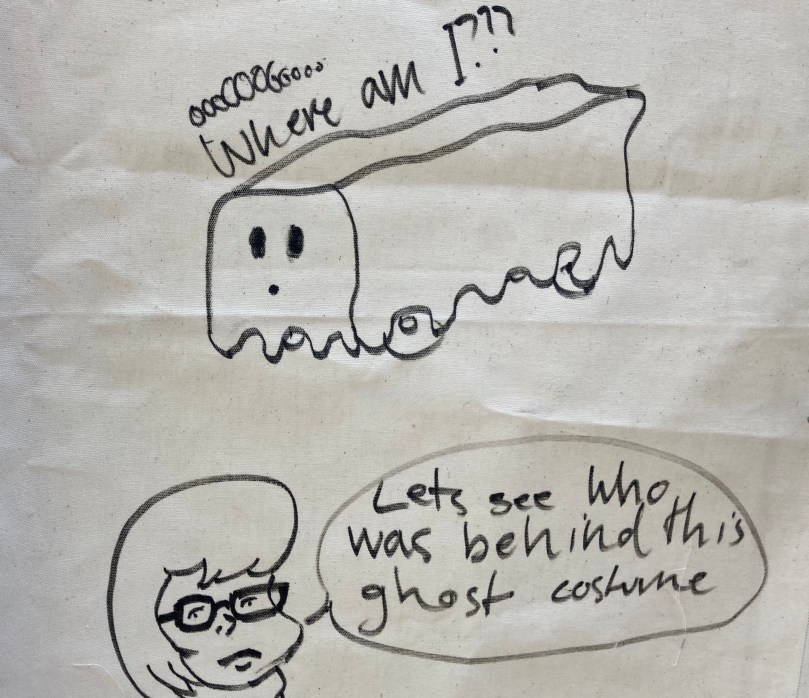 oooOOOGoooo
Where am I???
Lets see Who
was behind this
ghost costume